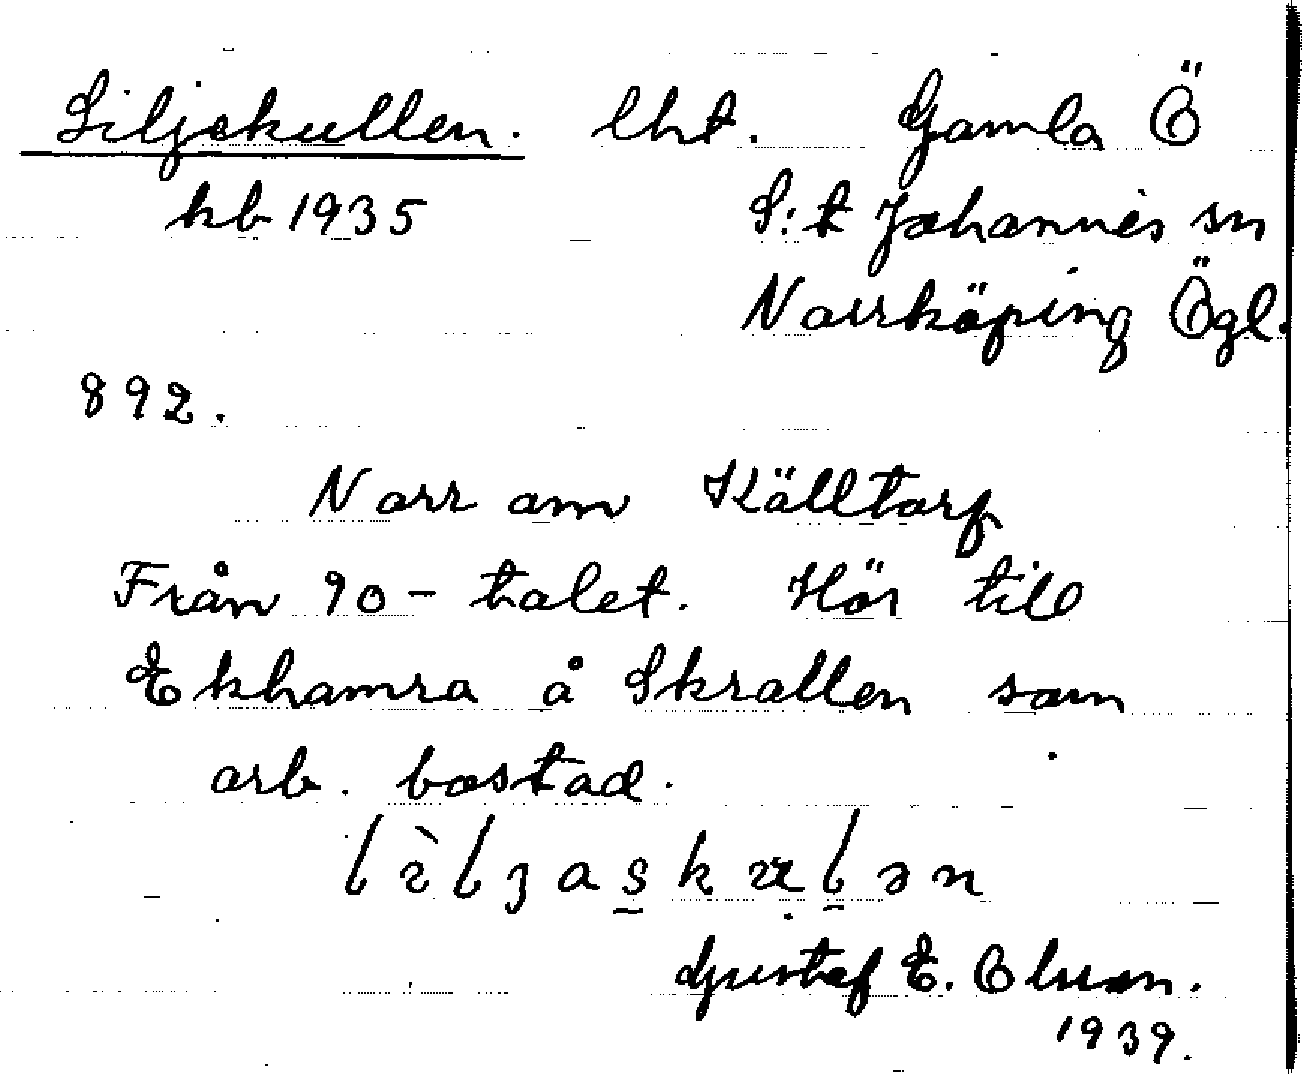 Liljekullen. lht. Gamla Ö
kb 1935 S:t Johannes sn
Norrköping Ögl.
892.
Norr om Källtorp
Från 90-talet. Hör till
Ekhamra å Skrallen som
arb. bostad.
Gustaf E. Olsson.
1939.